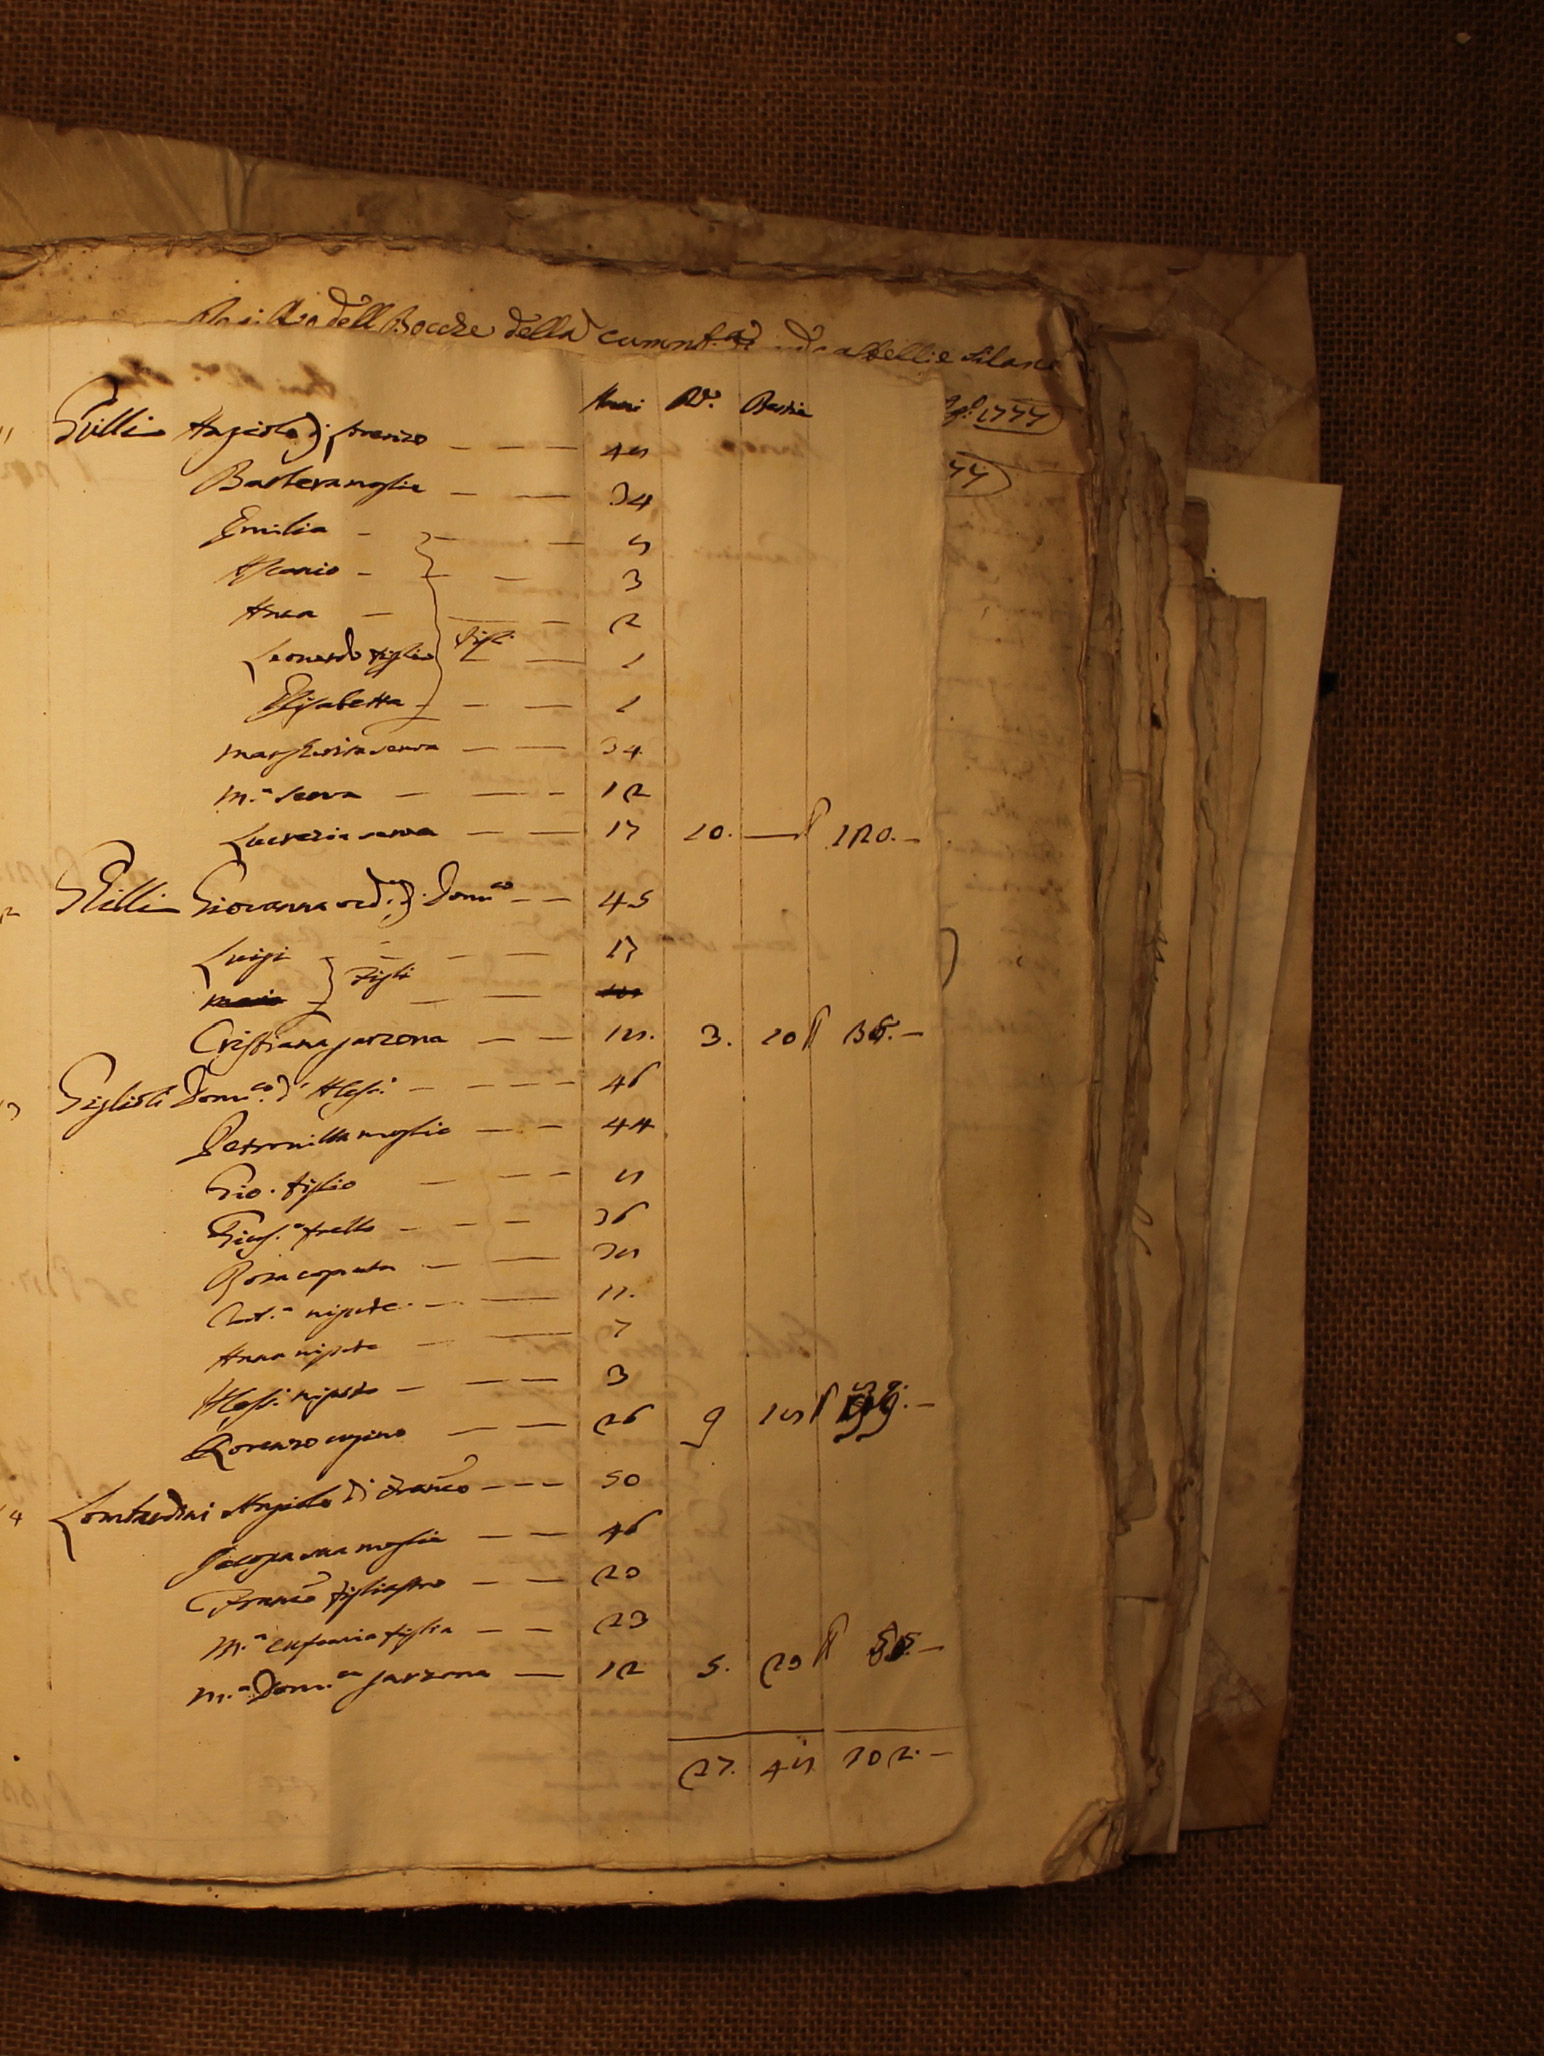 dell Bocche della
1777
77
Anni N.º Bestie
11 Gilli Angiolo di Lorenzo — — — 45
Bartera moglie — — 34
Emilia — — — 5
Ascanio — — — 3
Anna — — — 2
Leonardo figlio figli — — 1
Elisabetta — — — 1
Margherita serva — — 34
M.ª serva — — — 12
Lucrezia serva — — 17 10. — 120. —
12 Gilli Giovanna ved.ª di Dom.co — — 45
Luigi — — — 17
figli
Cristiana garzona — — 15. 3. 10 36. —
13 Giglioli Dom.co d' Aless.º — — — — 46
Petronilla moglie — — 44
Gio. figlio — — — 5
Gius.e frello — — — 36
Rosa cognata — — 35
nipote — — 11.
Anna nipote — — 7
Aless.º nipote — — — 3
Lorenzo cugino — — 26 9 15
14 Lombardini Angiolo di Franc.o — — — 50
Jacopa sua moglie — — 46
Franc.o figliastro — — 20
M.ª Eufemia figlia — — 23
M.ª Dom.ca garzona — 12 5. 20
27. 45 202. —